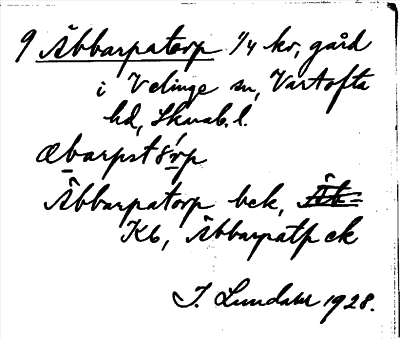 9 Äbbarpatorp 1/4 kr, gård
i Velinge sn, Vartofta
hd, Skarab. l.
æbarpst8'rp
Äbbarpatorp bek,
Kb, Äbbarpatp ek
J. Lundahl 1928.